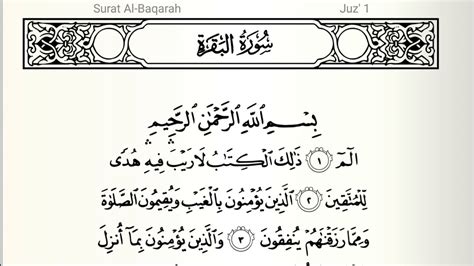 Surat Al-Baqarah Juz' 1
سُورَةُ الْبَقَرَةِ
بِسْمِ اللَّهِ الرَّحْمَٰنِ الرَّحِيمِ
الٓمٓ ۝١ ذَٰلِكَ الْكِتَابُ لَا رَيْبَ ۛ فِيهِ ۛ هُدًى
لِلْمُتَّقِينَ ۝٢ الَّذِينَ يُؤْمِنُونَ بِالْغَيْبِ وَيُقِيمُونَ الصَّلَاةَ
وَمِمَّا رَزَقْنَاهُمْ يُنْفِقُونَ ۝٣ وَالَّذِينَ يُؤْمِنُونَ بِمَا أُنْزِلَ